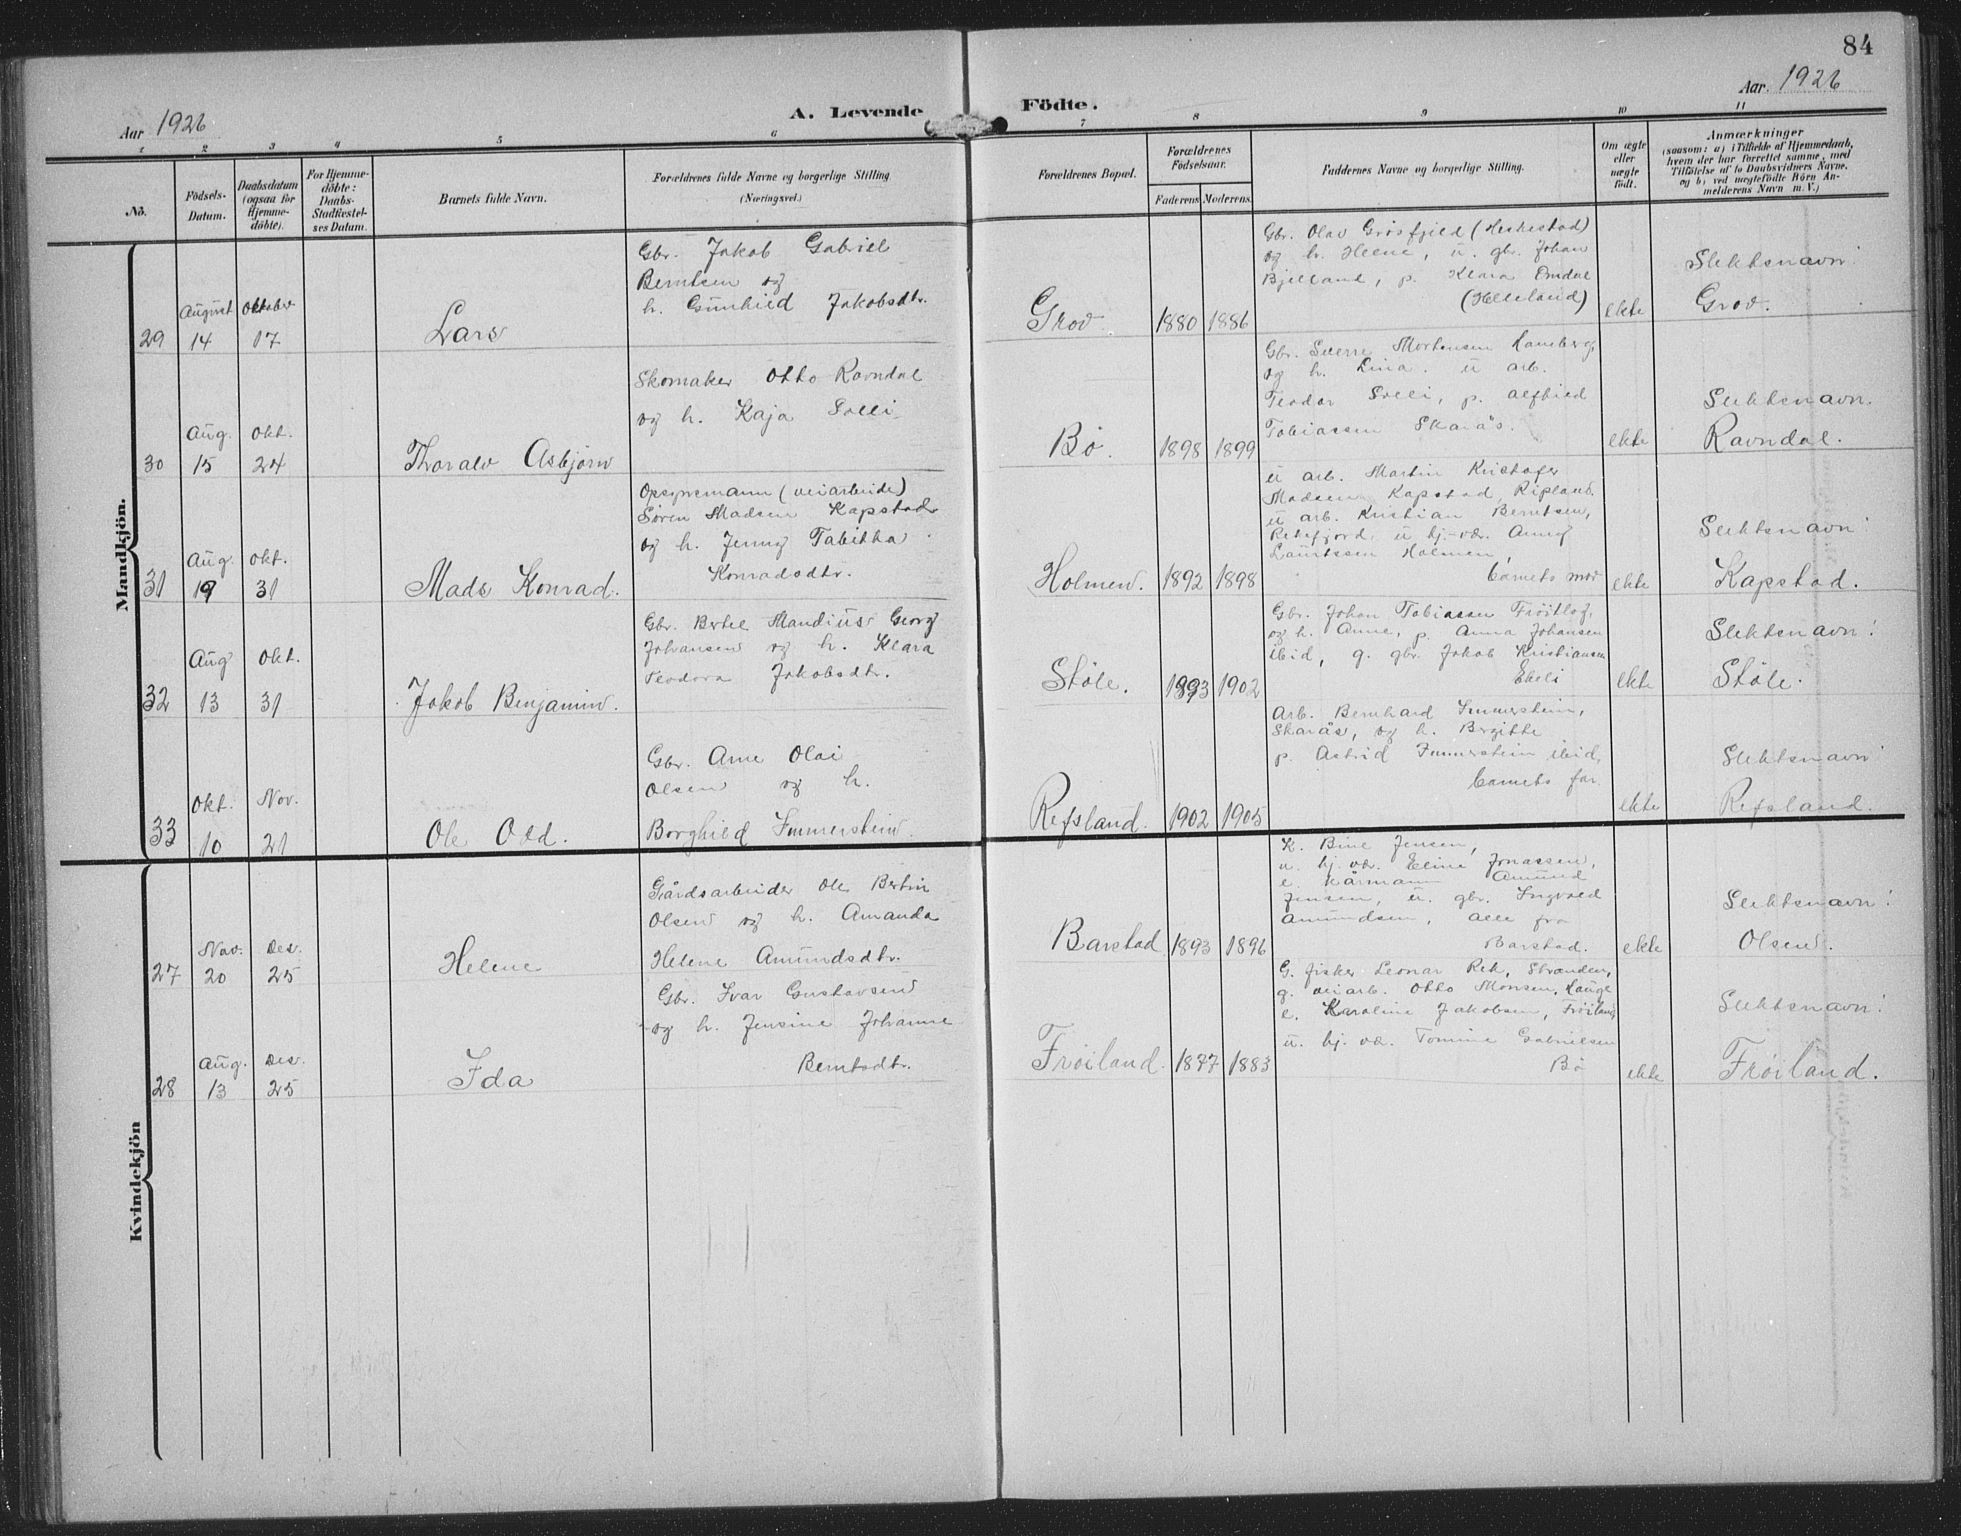 84
Aar 1926
A. Levende Födte.
Aar. 1926
1 2 3 4 5 6 7 8 9 10 11
No.
Födsels-
Datum.
Daabsdatum
(ogsaa for
Hjemme-
döbte).
For Hjemme-
döbte:
Daabs-
Stadfæstel-
ses Datum.
Barnets fulde Navn.
Forældrenes fulde Navne og borgerlige Stilling
(Næringsvei.)
Forældrenes Bopæl.
Forældrenes
Födselsaar.
Faderens Moderens.
Faddernes Navne og borgerlige Stilling.
Om ægte
eller
uægte
født.
Anmærkninger
(saasom: a) i Tilfælde af Hjemmedaab,
hvem der har forrettet samme, med
Tilföielse af to Daabsvidners Navne.
og b) ved uægtefödte Börn An-
melderens Navn m. V.)
Mandkjön.
29
August
14
Oktober
17
Lars
Gbr. Jakob Gabriel
Berntsen og
h. Gunhild Jakobsdtr.
Grov
1880 1886
Gbr. Olav Grøsfjeld (Heskestad)
og h. Helene, u. gbr. Johan
Bjelland, p. Klara Omdal
(Helleland)
ekte
Slektsnavn:
Grov.
30
Aug.
15
Okt.
24
Thoralv Asbjørn
Skomaker Otto Ravndal
og h. Kaja Solli
Bø.
1898 1899
Gbr. Sverre Mortensen Haneberg,
og h. Lina. u arb.
Teodor Solli, p. Alfhild
Tobiassen Skarås.
ekte
Slektsnavn.
Ravndal.
31
Aug.
19
Okt.
31
Mads Konrad.
Opsynsmann (veiarbeide)
Søren Madsen Kapstad
og h. Jenny Tabitha
Konradsdtr.
Holmen.
1892 1898
u arb. Martin Kristofer
Madsen Kapstad, Ripland.
u arb. Kristian Berntsen,
Rekefjord, u hj.-vær. Anny
Lauritssen Holmen,
barnets mor
ekte
Slektsnavn:
Kapstad.
32
Aug
13
Okt.
31
Jakob Benjamin.
Gbr. Bertel Mandius Georg
Johansen og h. Klara
Teodora Jakobsdtr.
Støle.
1893 1902
Gbr. Johan Tobiassen Frøitlog,
og h. Anne, p. Anna Johansen
ibid, g. gbr. Jakob Kristiansen
Ekeli
ekte
Slektsnavn:
Støle.
33
Okt.
10
Nov.
21
Ole Odd.
Gbr. Arne Olai
Olsen og h.
Borghild Immerstein.
Refsland.
1902 1905
Arb. Bernhard Immerstein,
Skarås, og h. Bergitte
p. Astrid Immerstein ibid,
barnets far.
ekte
Slektsnavn:
Refsland.
Kvindekjön
27
Nov.
20
Des.
25
Helene
Gårdsarbeider Ole Bertin
Olsen og h. Amanda
Helene Amundsdtr.
Barstad
1893 1896
K. Bine Jensen,
u. hj. vær. Eline Jonassen,
e. kårmann Amund
Jensen, u. gbr. Ingvald
Amundsen, alle fra
Barstad.
ekte
Slektsnavn:
Olsen.
28
Aug.
13
Des.
25
Ida
Gbr. Ivar Gustavsen
og h. Jensine Johanne
Berntsdtr.
Frøiland.
1877 1883
G. fisker Leonar Rek, Stranden,
g. veiarb. Otto Monsen, Hauge
e. Karoline Jakobsen, Frøiland
u. hj. vær. Tomine Gabrielsen
Bø
ekte
Slektsnavn:
Frøiland.